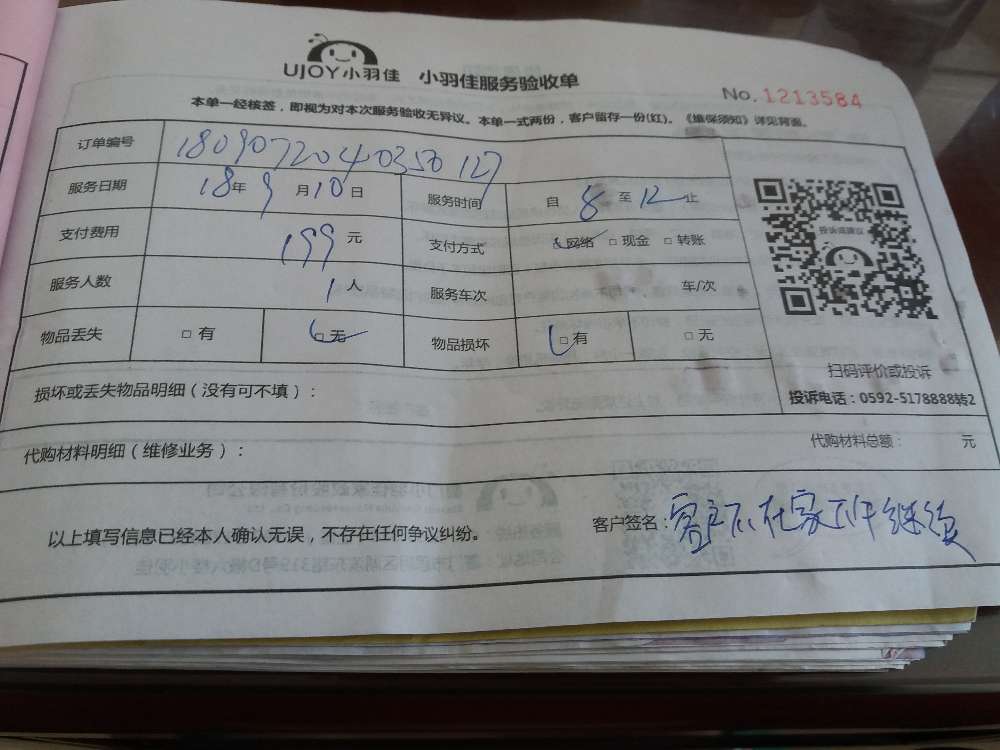 UJOY小羽佳 小羽佳服务验收单
No.1213584
本单一经核签，即视为对本次服务验收无异议。本单一式两份，客户留存一份(红)。《维保须知》详见背面。
订单编号 1809072040350127
服务日期 18年9月10日 服务时间 自8至12止
支付费用 199元 支付方式 □网络 □现金 □转账
投诉或建议
服务人数 1人 服务车次 车/次
物品丢失 □有 □无 物品损坏 □有 □无
扫码评价或投诉
投诉电话：0592-5178888转2
损坏或丢失物品明细（没有可不填）：
代购材料明细（维修业务）：
代购材料总额： 元
以上填写信息已经本人确认无误，不存在任何争议纠纷。
客户签名：客户不在家下午继续